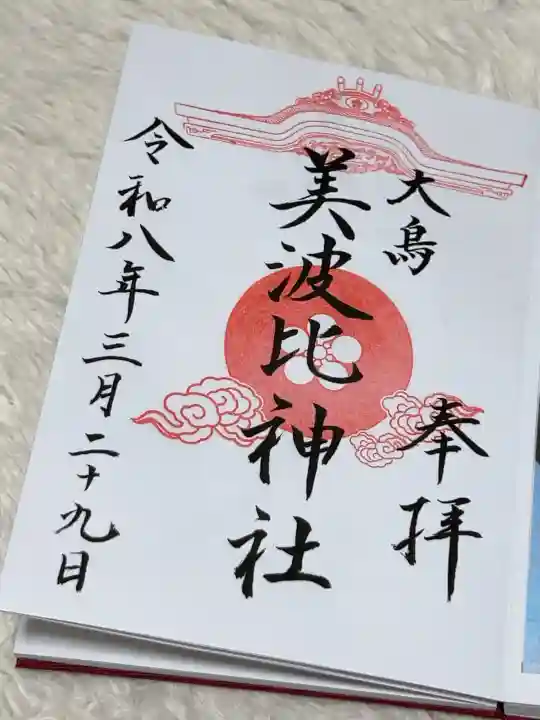 大鳥
奉拝
美波比神社
令和八年三月二十九日